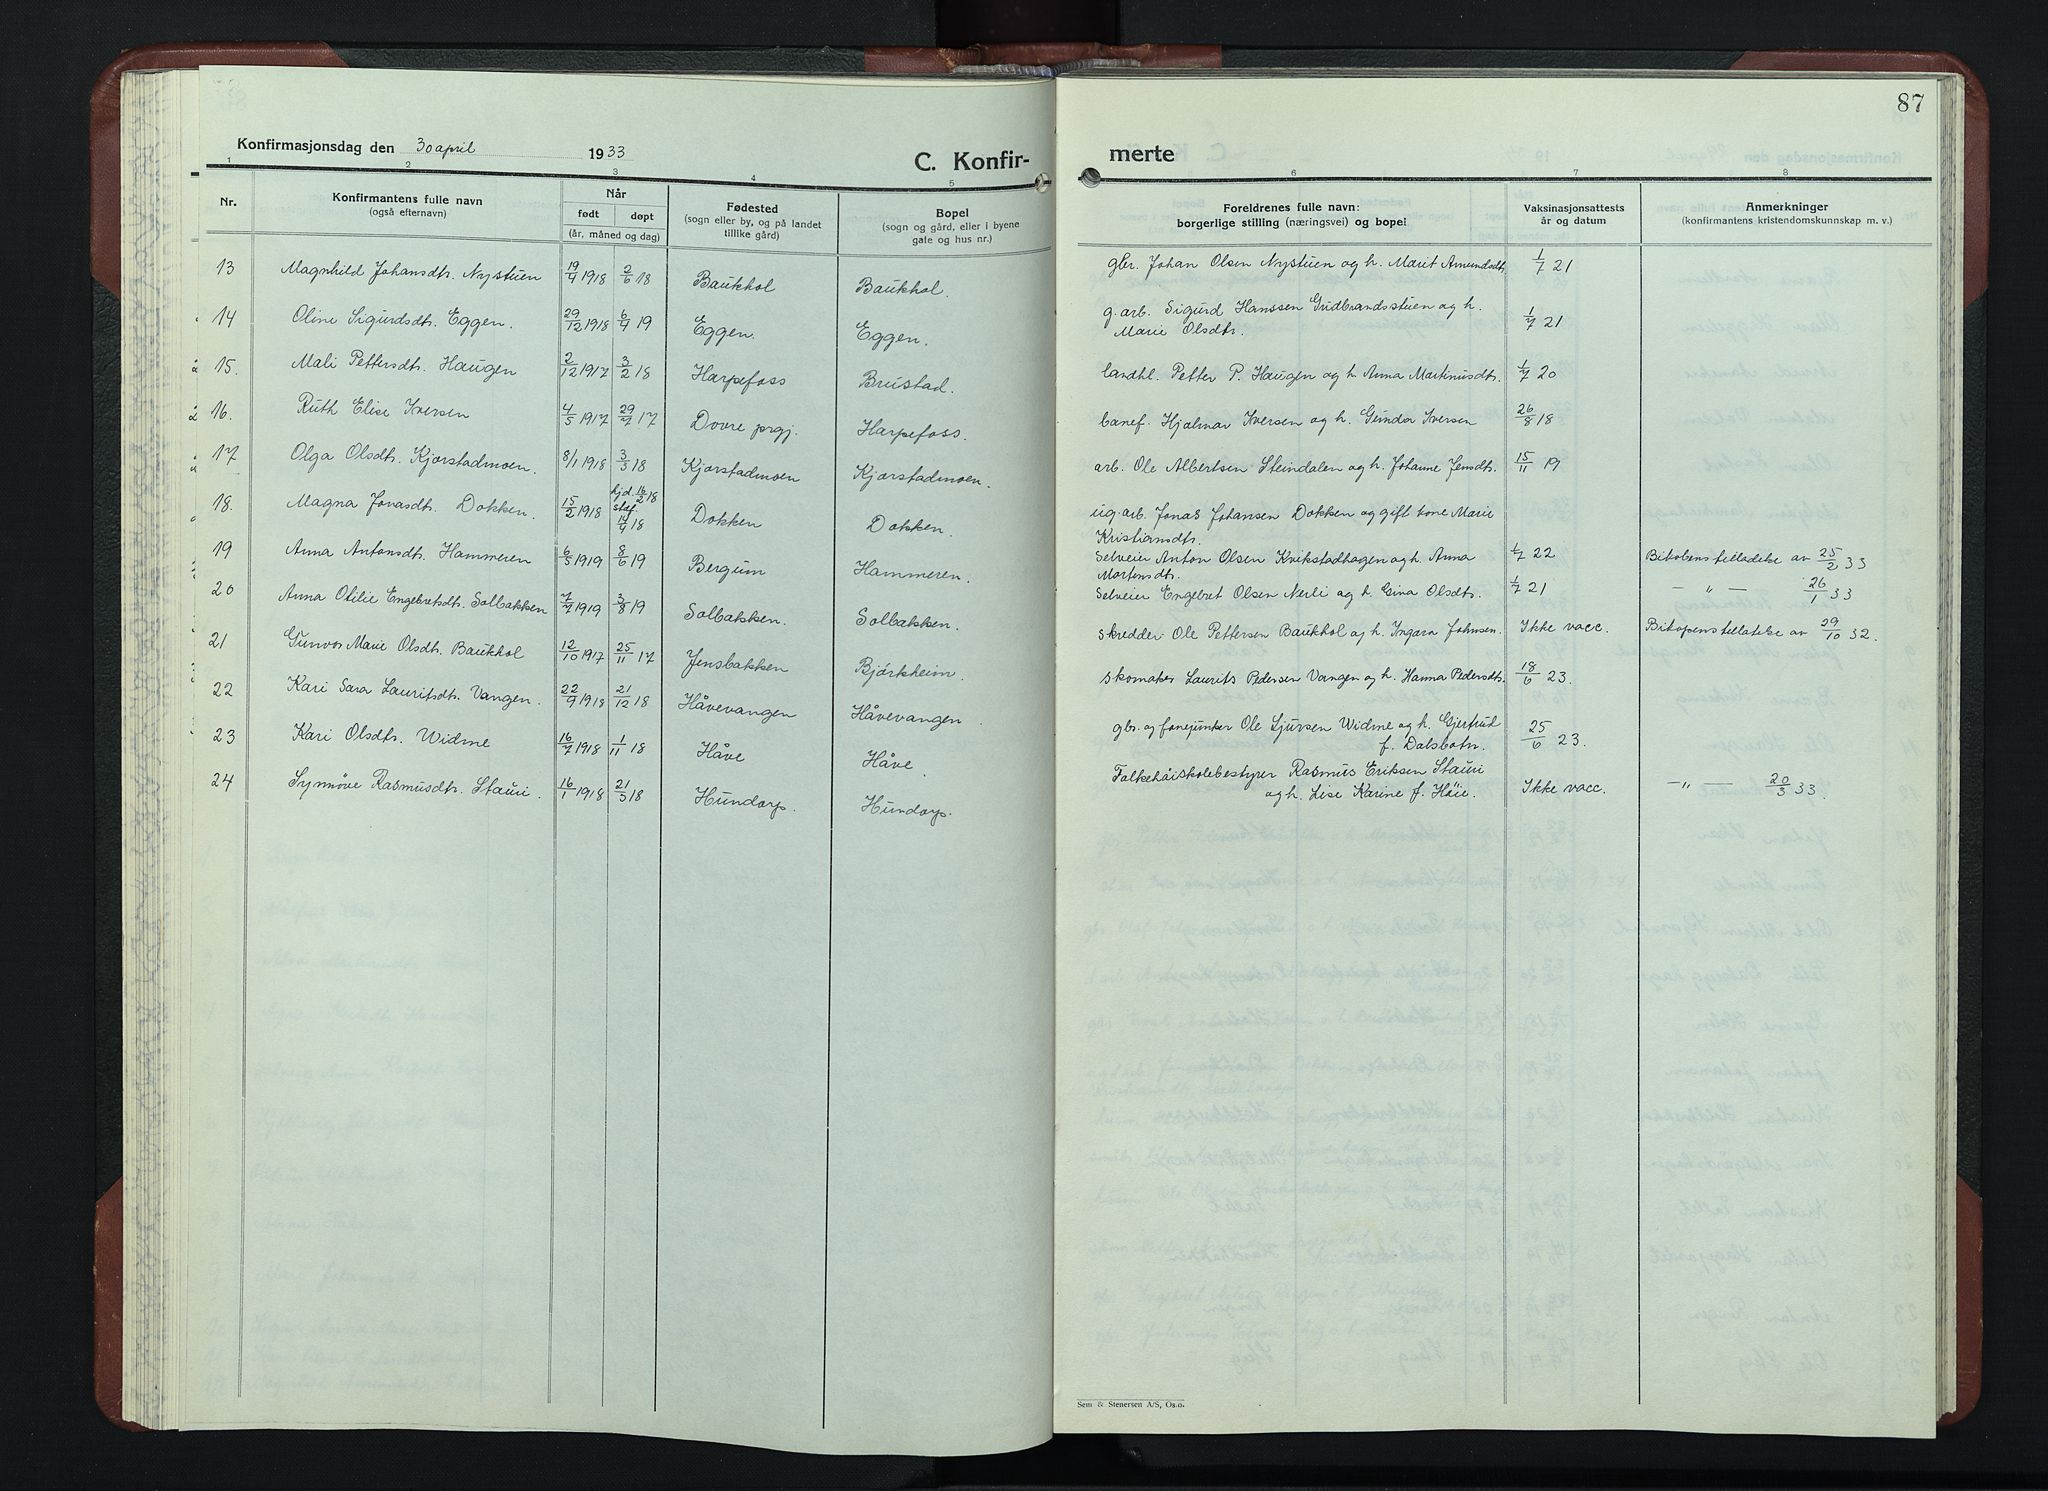 87
Konfirmasjonsdag den 30 april 1933
C. Konfir-
merte
1 2 3 4 5 6 7 8
Nr.
Konfirmantens fulle navn
(også efternavn)
Når
født døpt
(år, måned og dag)
Fødested
(sogn eller by, og på landet
tillike gård)
Bopel
(sogn og gård, eller i byene
gate og hus nr.)
Foreldrenes fulle navn:
borgerlige stilling (næringsvei) og bopel
Vaksinasjonsattests
år og datum
Anmerkninger
(konfirmantens kristendomskunnskap m. v.)
13 Magnhild Johansdtr. Nystuen 19/4 1918 2/6 18 Baukhol Baukhol. gbr. Johan Olsen Nystuen og h. Marit Amundsdtr. 1/7 21
14 Oline Sigurdsdtr. Eggen. 29/12 1918 6/4 19 Eggen. Eggen. g.arb. Sigurd Hanssen Gudbrandsstuen og h.
Marie Olsdtr. 1/7 21
15. Mali Pettersdtr. Haugen 2/12 1917 3/2 18 Harpefoss Brustad. landhl. Petter P. Haugen og h. Anna Martinusdtr. 1/7 20
16. Ruth Elise Iversen 4/5 1917 29/7 17 Dovre prgj. Harpefoss. banef. Hjalmar Iversen og h. Gunda Iversen 26/8 18
17 Olga Olsdtr. Kjorstadmoen. 8/1 1918 3/3 18 Kjorstadmoen Kjorstadmoen. arb. Ole Albertsen Steindalen og h. Johanne Jensdtr. 15/11 19
18. Magna Jonasdtr. Dokken. 15/2 1918 hjd. 16/2 18
staf. 14/4 18 Dokken Dokken. ug.arb. Jonas Johansen Dokken og gift kone Marie
Kristiansdtr.
19 Anna Antonsdtr. Hammeren 6/5 1919 8/6 19 Bergum Hammeren. Selveier Anton Olsen Kvikstadhagen og h. Anna
Martensdtr. 1/7 22 Bikobens tilladelse av 25/2 33
20 Anna Otilie Engebretsdtr. Solbakken 7/7 1919 3/8 19 Solbakken. Solbakken. Selveier Engebret Olsen Nerli og h. Gina Olsdtr. 1/7 21 — " — 26/1 33
21 Gunvor Marie Olsdtr. Baukhol 12/10 1917 25/11 17 Jensbakken Bjørkheim. skredder Ole Pettersen Baukhol og h. Ingara Johnsen. Ikke vacc. Bikopens tillatelse av 29/10 32.
22 Kari Sara Lauritsdtr. Vangen. 22/9 1918 21/12 18 Håvevangen Håvevangen. skomaker Laurits Pedersen Vangen og h. Hanna Pedersdtr. 18/6 23.
23 Kari Olsdtr. Widme 16/7 1918 1/11 18 Håve Håve. gbr. og fanejunker Ole Sjursen Widme og h. Gjertrud
f. Dalsbotn. 25/6 23.
24 Synnøve Rasmusdtr. Stauri. 16/1 1918 21/3 18 Hundorp. Hundorp. Folkehøiskolebestyrer Rasmus Eriksen Stauri
og h. Lise Karine f. Høie. Ikke vacc. — " — 20/3 33.
Sem & Stenersen A/S, Oslo.